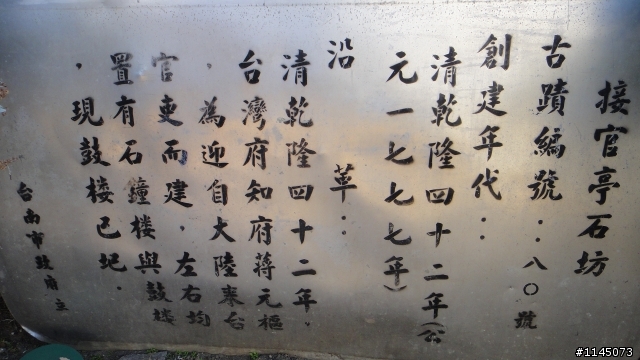 接官亭石坊
古蹟編號：八〇號
創建年代：
清乾隆四十二年（公
元一七七七年）
沿革：
清乾隆四十二年，
台灣府知府蔣元樞
，為迎自大陸來台
官吏而建，左右均
置有石鐘樓與鼓楼
，現鼓楼已圮．
台南市政府立
#1145073